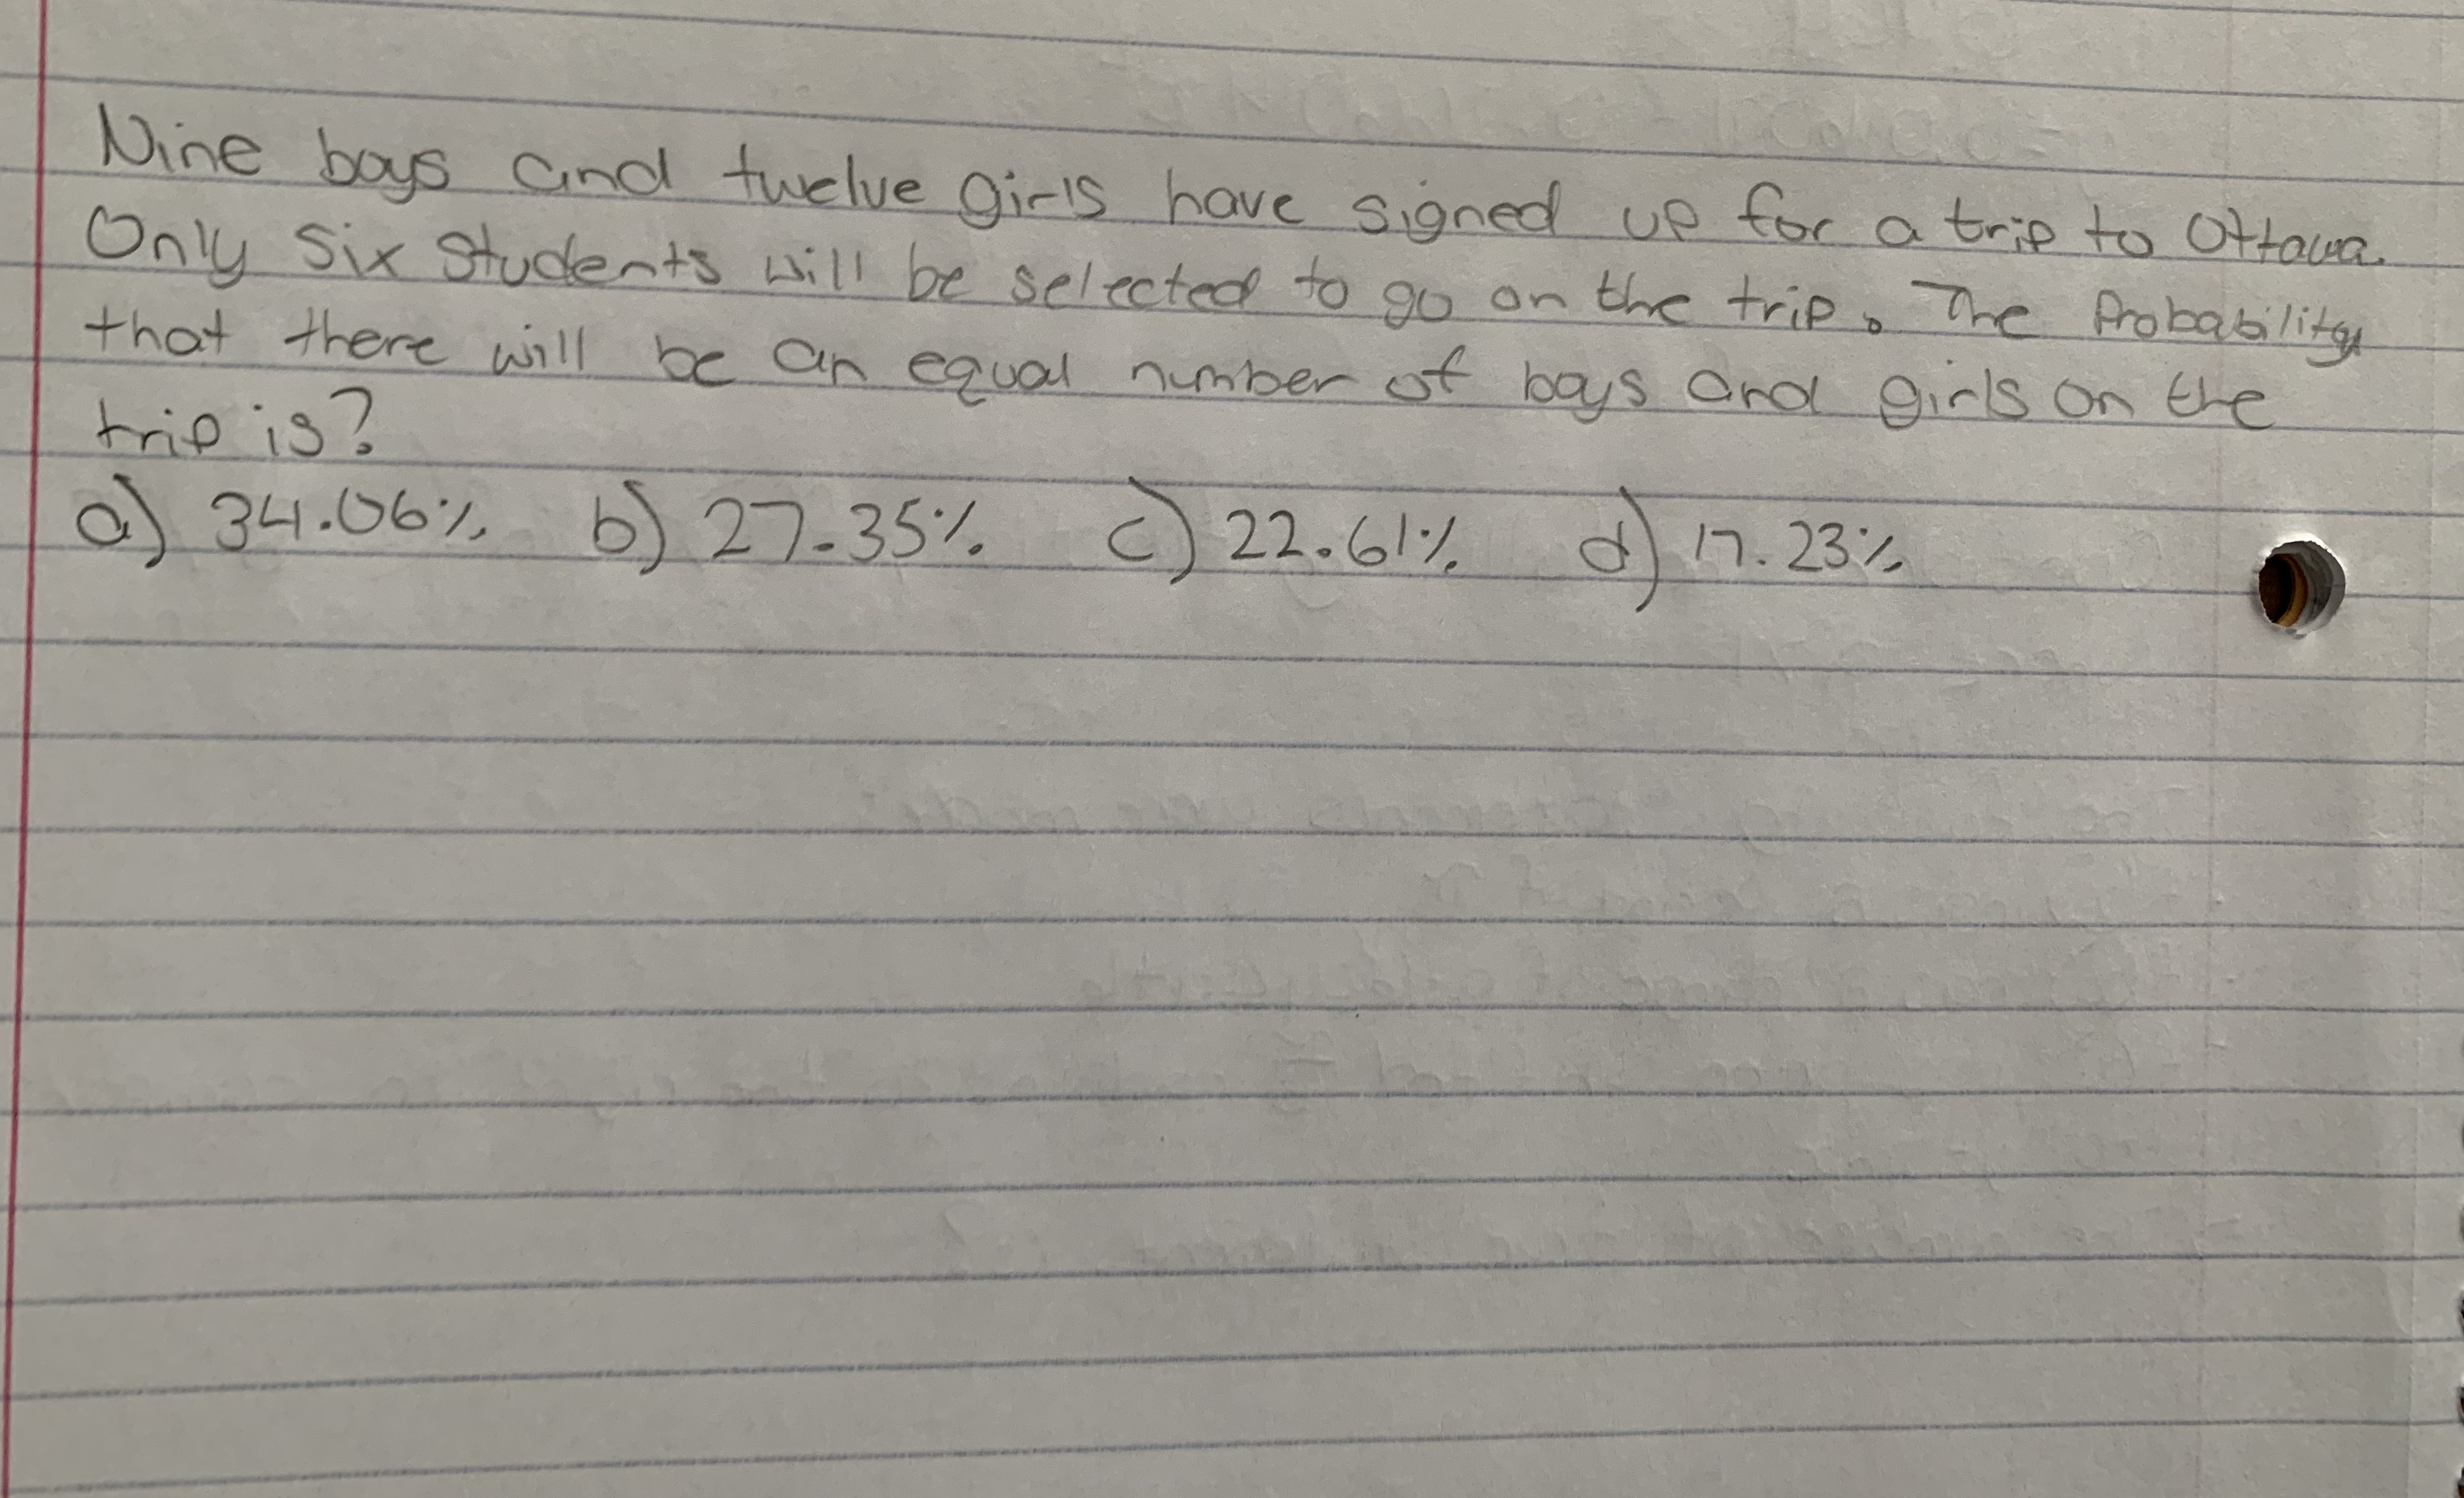 Nine boys and twelve girls have signed up for a trip to Ottawa.
Only six students will be selected to go on the trip. The Probability
that there will be an equal number of boys and girls on the
trip is?
a) 34.06% b) 27.35% c) 22.61% d) 17.23%